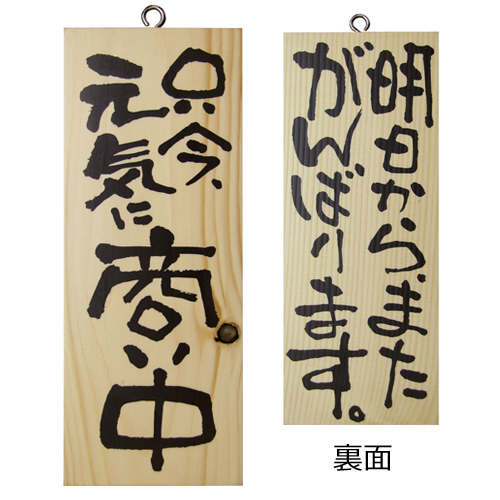 只今、
元気に
商い中
明日からまた
がんばります。
裏面